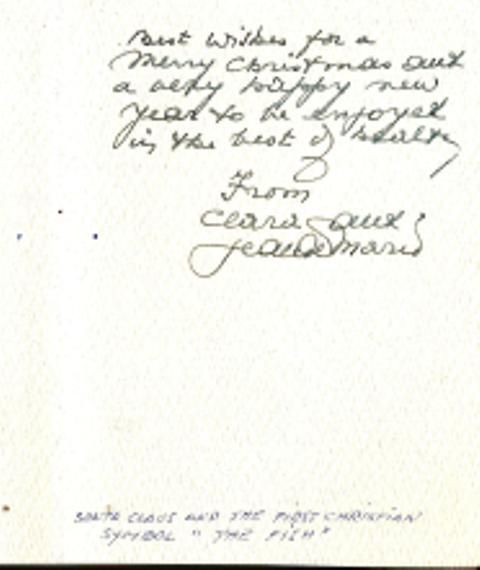 Best wishes for a
Merry Christmas and
a very happy new
year to be enjoyed
in the best of health
From
Clara and
Jean Marie
SANTA CLAUS AND THE FIRST CHRISTIAN
SYMBOL "THE FISH"